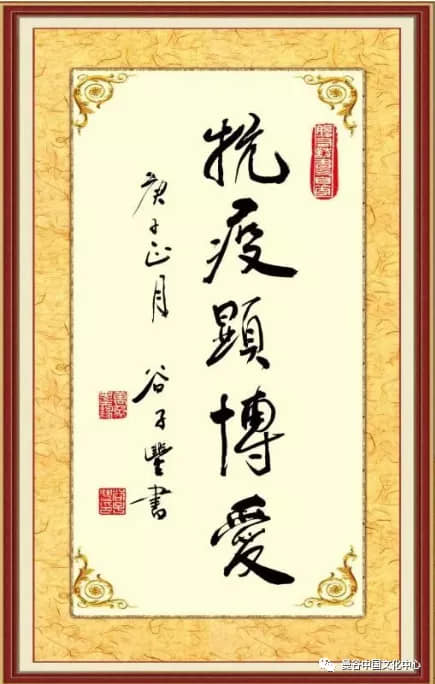 抗疫顯博愛
庚子正月 谷子豐書
曼谷中国文化中心